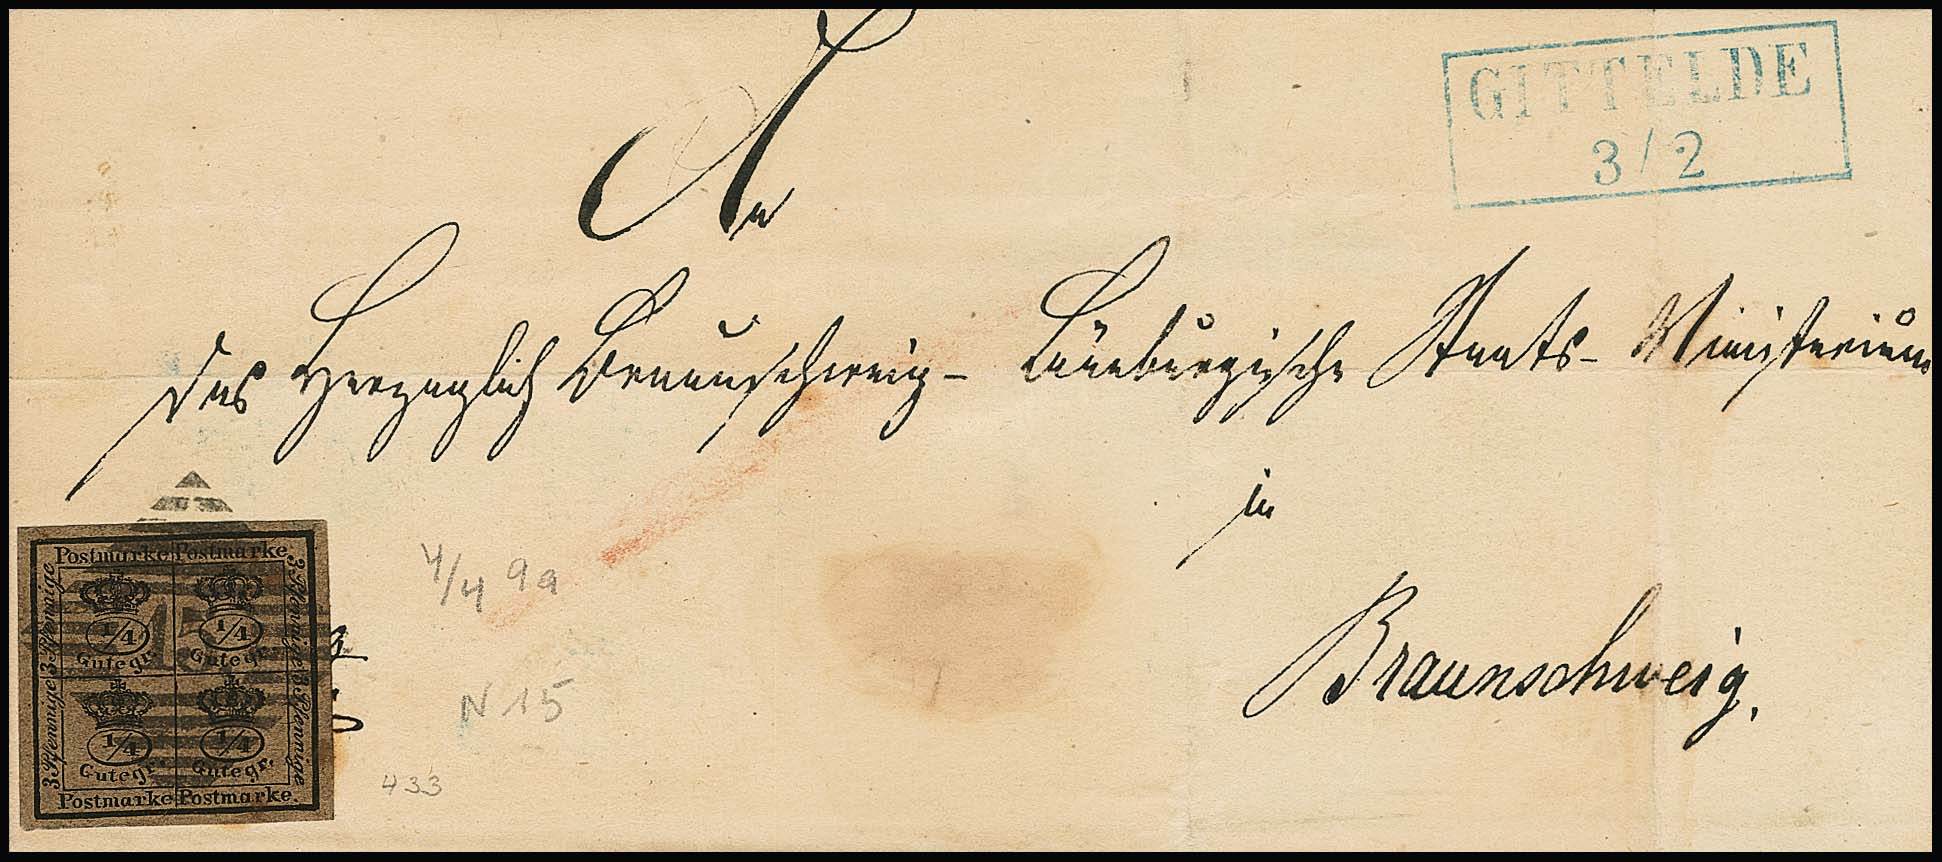 GITTELDE
3/2
An
das Herzoglich Braunschweig-Lüneburgische Staats-Ministerium
in
Braunschweig.
Postmarke Postmarke.
3 Pfennige 3 Pfennige
3 Pfennige 3 Pfennige
1/4 1/4
Gutegr. Gutegr.
1/4 1/4
Gutegr. Gutegr.
Postmarke Postmarke.
15
4/4 9a
N 15
433